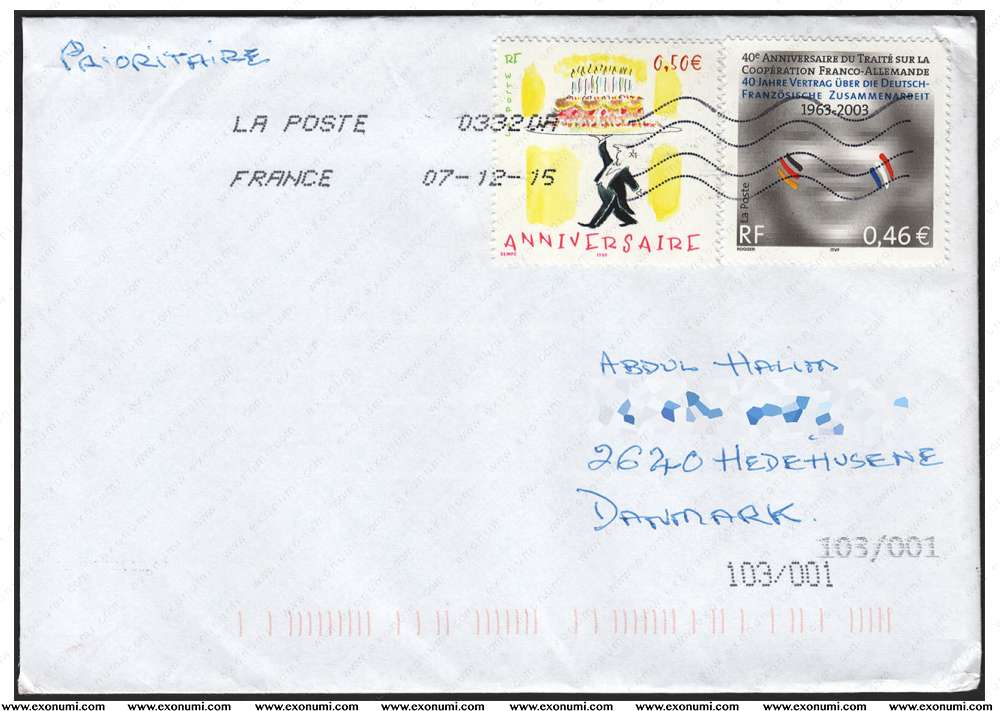 PRIORITAIRE
RF
LA POSTE
0,50€
ANNIVERSAIRE
SEMPÉ
40e ANNIVERSAIRE DU TRAITÉ SUR LA
COOPÉRATION FRANCO-ALLEMANDE
40 JAHRE VERTRAG ÜBER DIE DEUTSCH-
FRANZÖSISCHE ZUSAMMENARBEIT
1963-2003
La Poste
RF 0,46 €
LA POSTE 03320A
FRANCE 07-12-15
ABDUL HALIM
2640 HEDEHUSENE
DANMARK.
103/001
103/001
www.exonumi.com www.exonumi.com www.exonumi.com www.exonumi.com www.exonumi.com www.exonumi.com www.exonumi.com www.exonumi.com